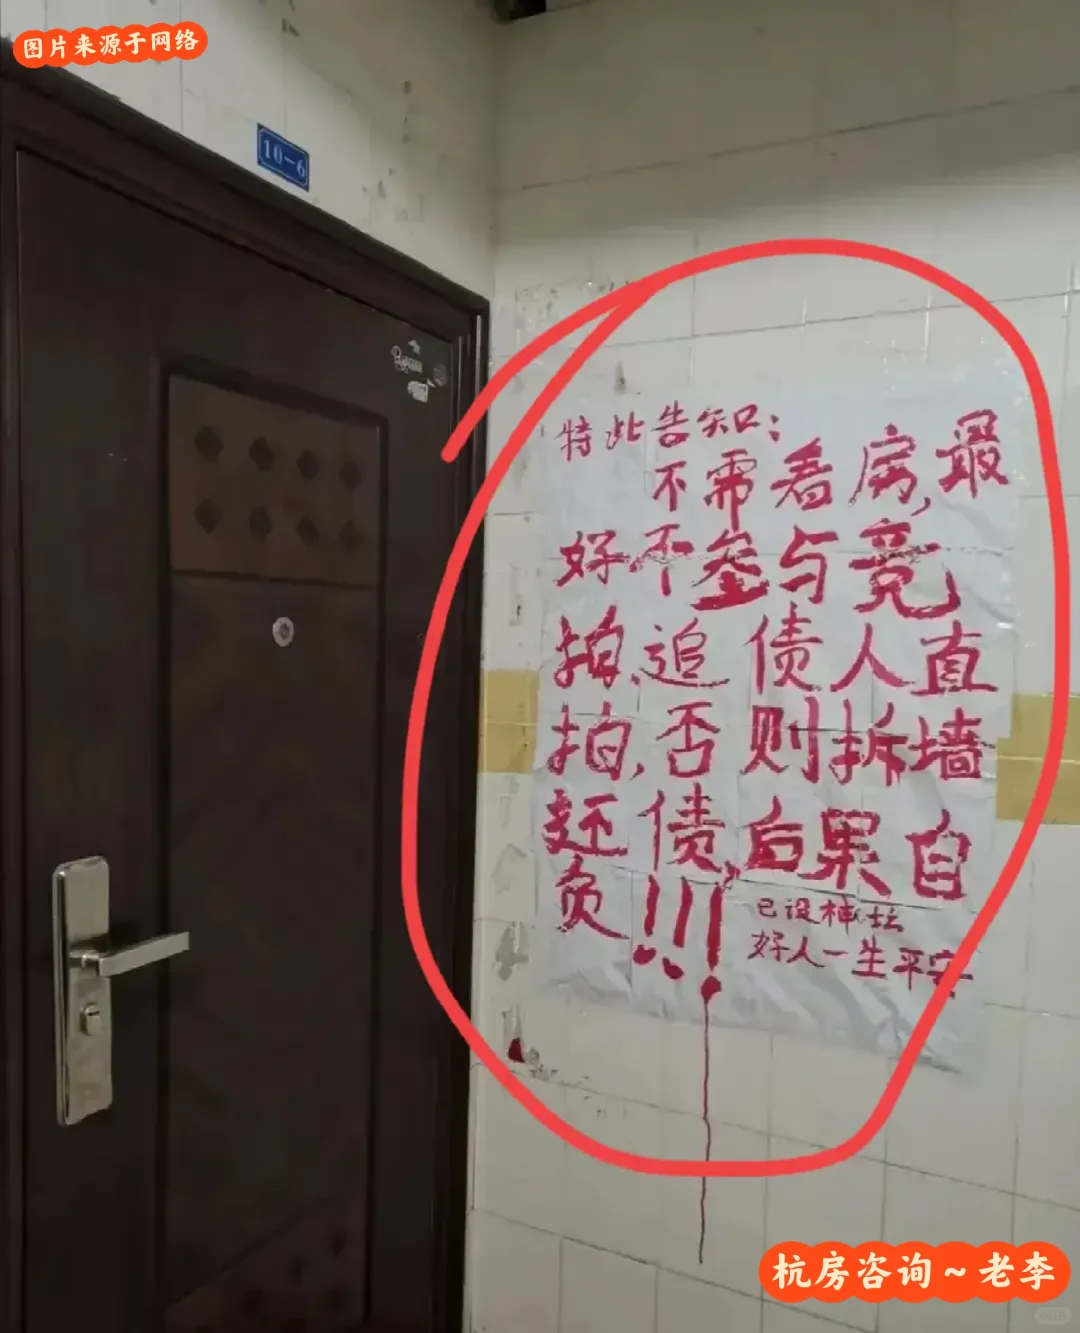 图片来源于网络
10-6
特此告知:
不需看房,最
好不参与竞
拍,追债人直
拍,否则拆墙
还债,后果自
负!!!
已设神坛
好人一生平安
杭房咨询~老李